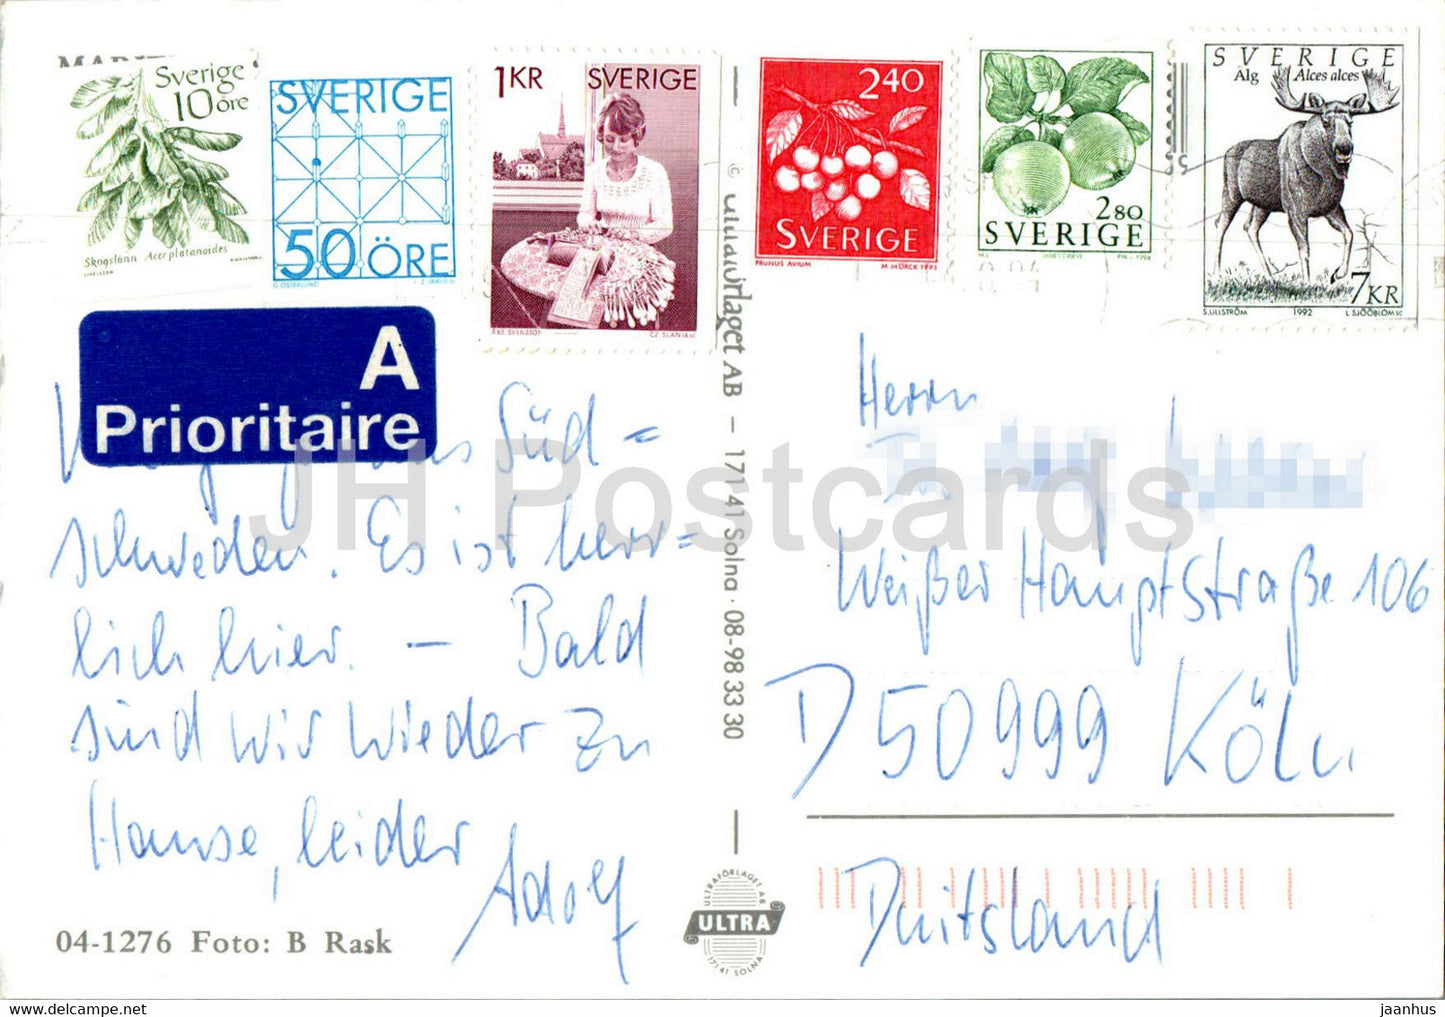 Sverige
10 öre
Skogslönn Acer platanoides
SVERIGE
50 ÖRE
1KR SVERIGE
CZ. SLANIA sc
2.40
SVERIGE
PRUNUS AVIUM M. MÖRCK 1993
2 80
SVERIGE
SVERIGE
Alg Alces alces
7 KR
S. ULLSTRÖM 1992 L SJÖÖBLOM SC
A
Prioritaire
Süd=
schweden. Es ist herr=
lich hier. – Bald
sind wir wieder zu
Hause, leider
Adolf
04-1276 Foto: B Rask
© Ultraförlaget AB – 171 41 Solna · 08-98 33 30
ULTRAFÖRLAGET AB
ULTRA
171 41 SOLNA
Herrn
Weißer Hauptstraße 106
D 50999 Köln
Duitsland
JH Postcards
jaanhus